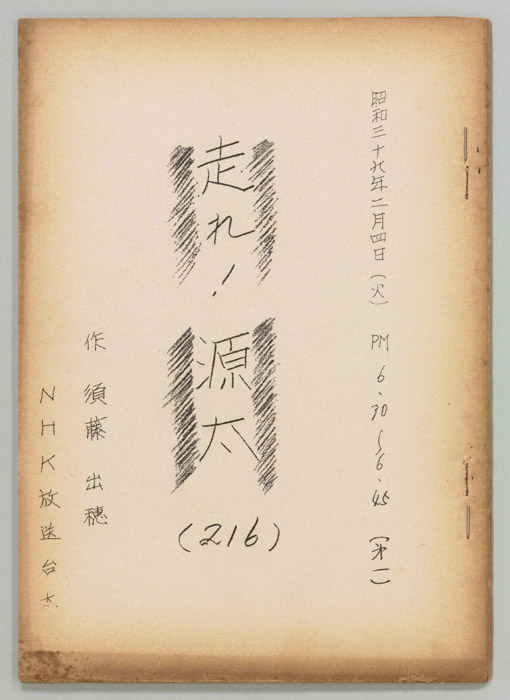 昭和三十九年二月四日（火） PM 6.30〜6.45 （第一）
走れ！源太
（216）
作 須藤出穂
NHK放送台本